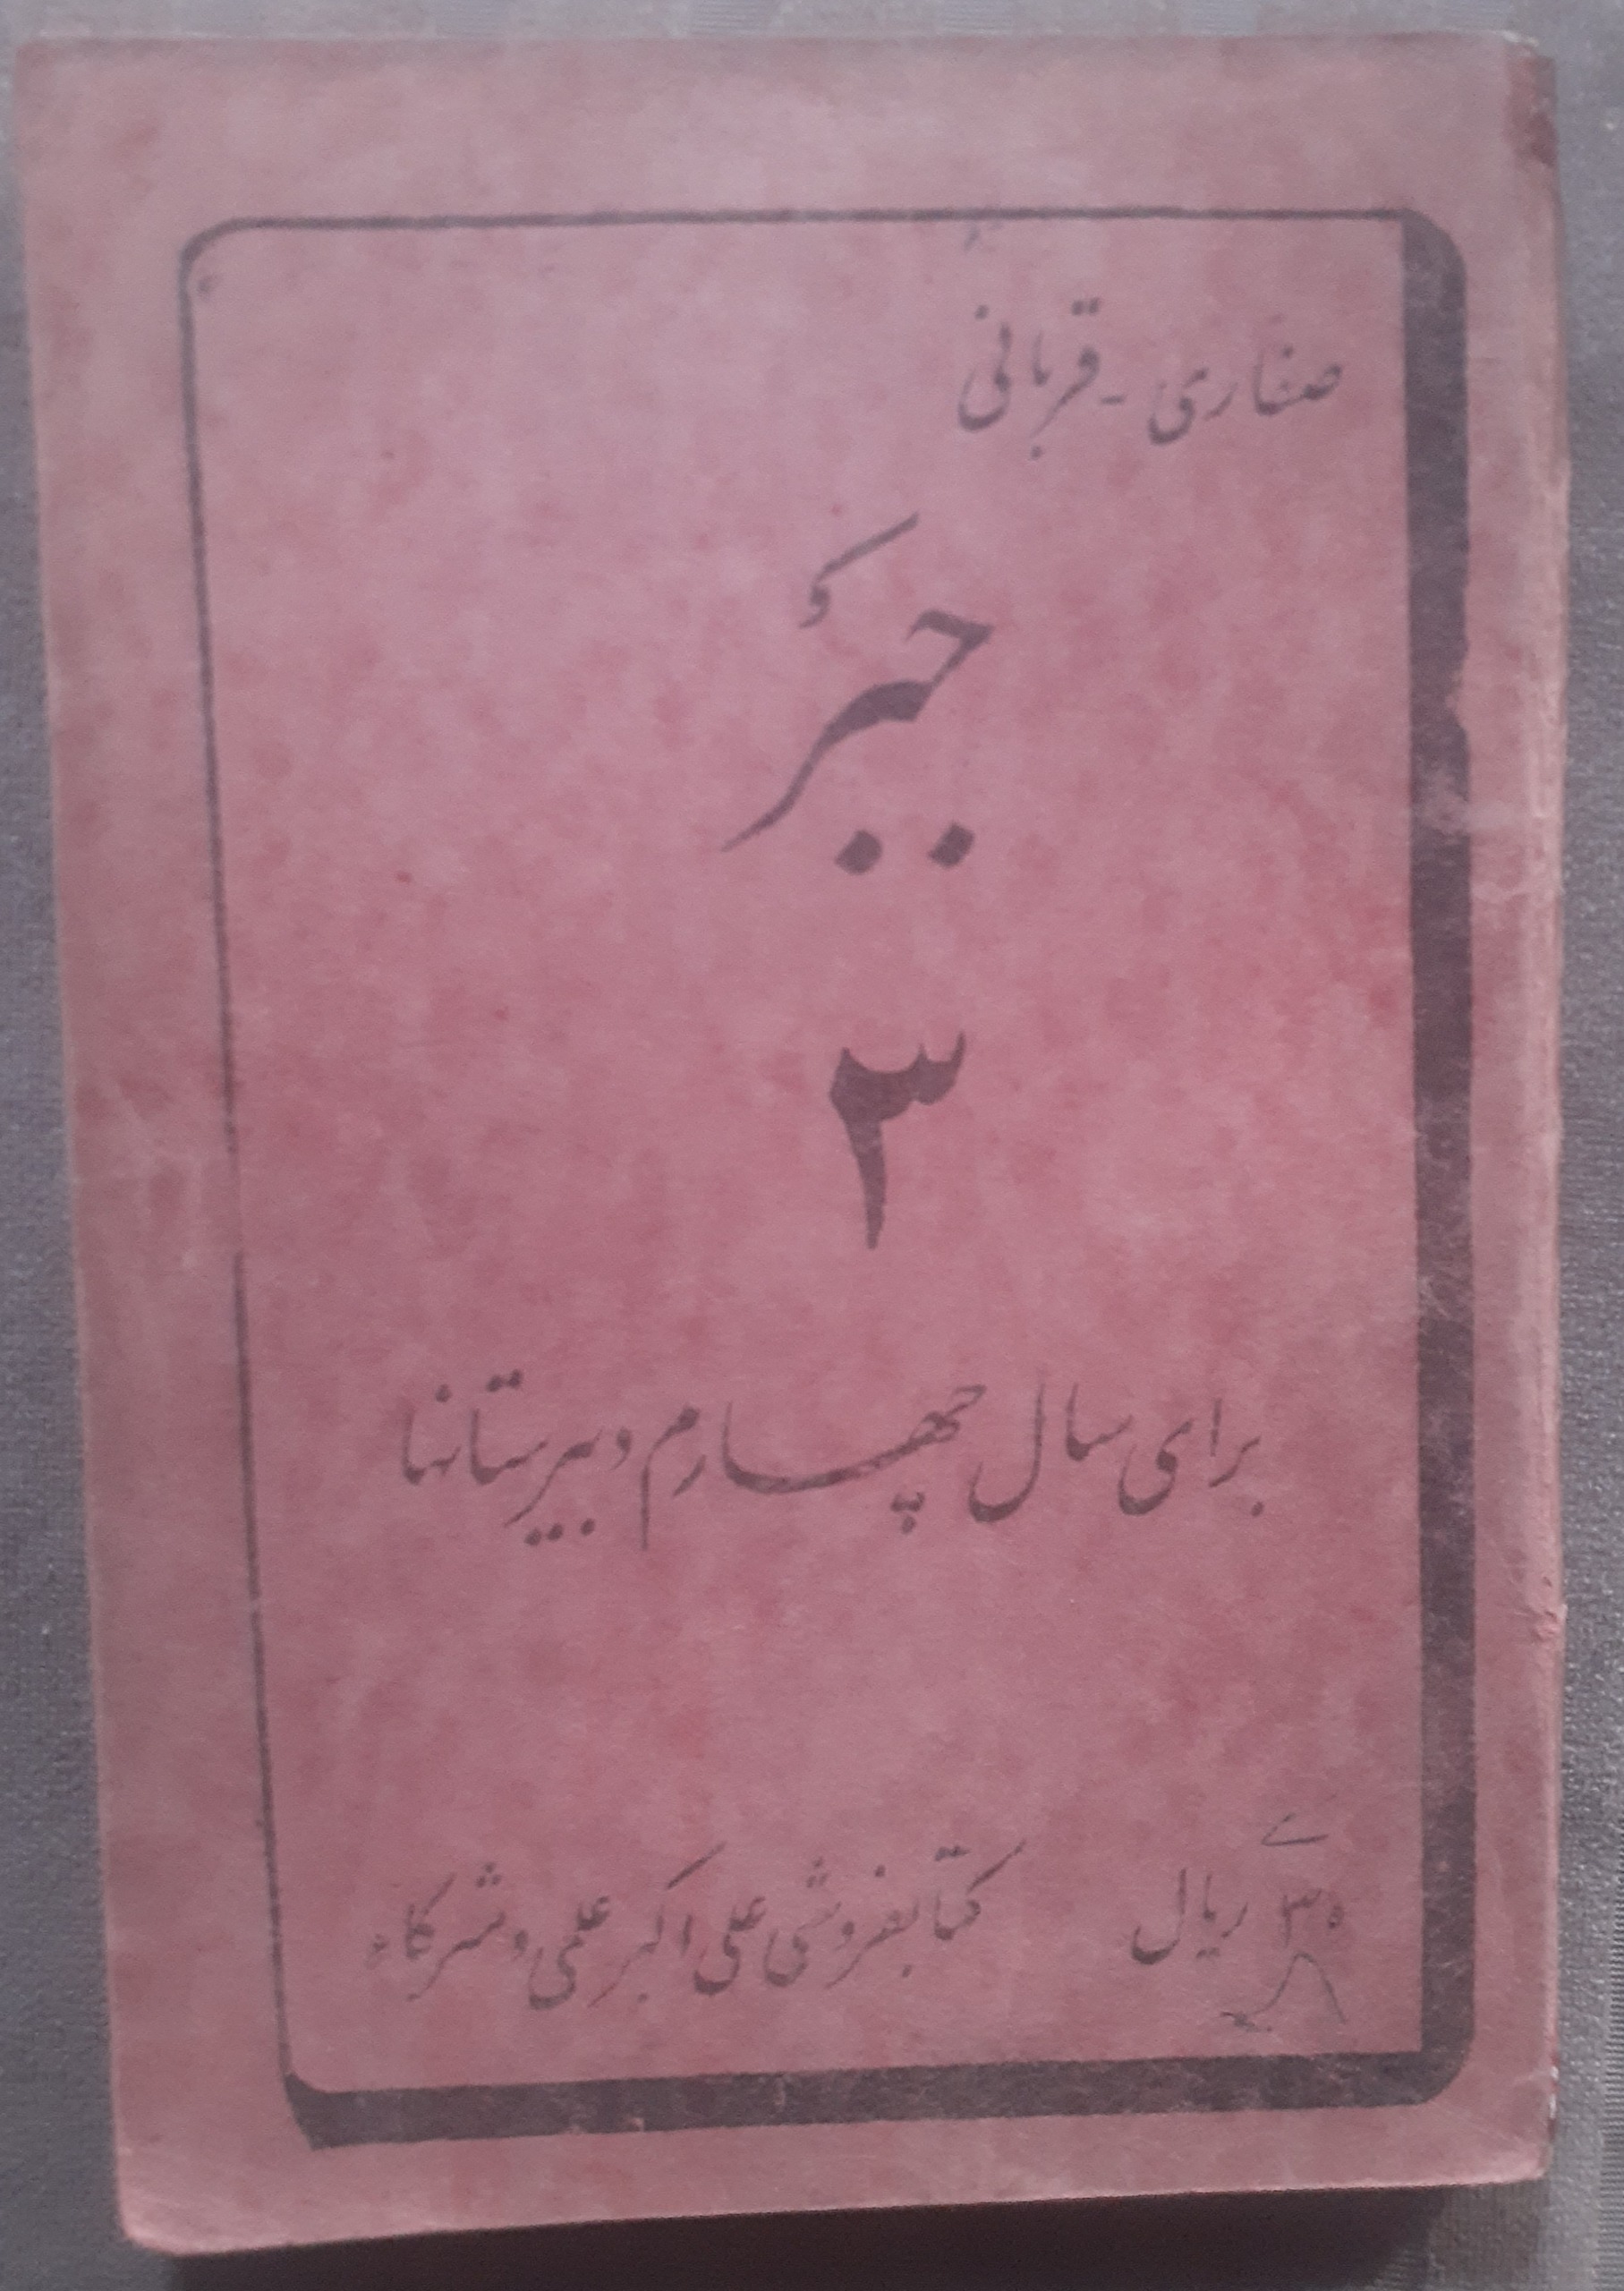 صفاری - قربانی
جبر
۳
برای سال چهارم دبیرستانها
۳۰ ریال
کتابفروشی علی اکبر علمی و شرکاء